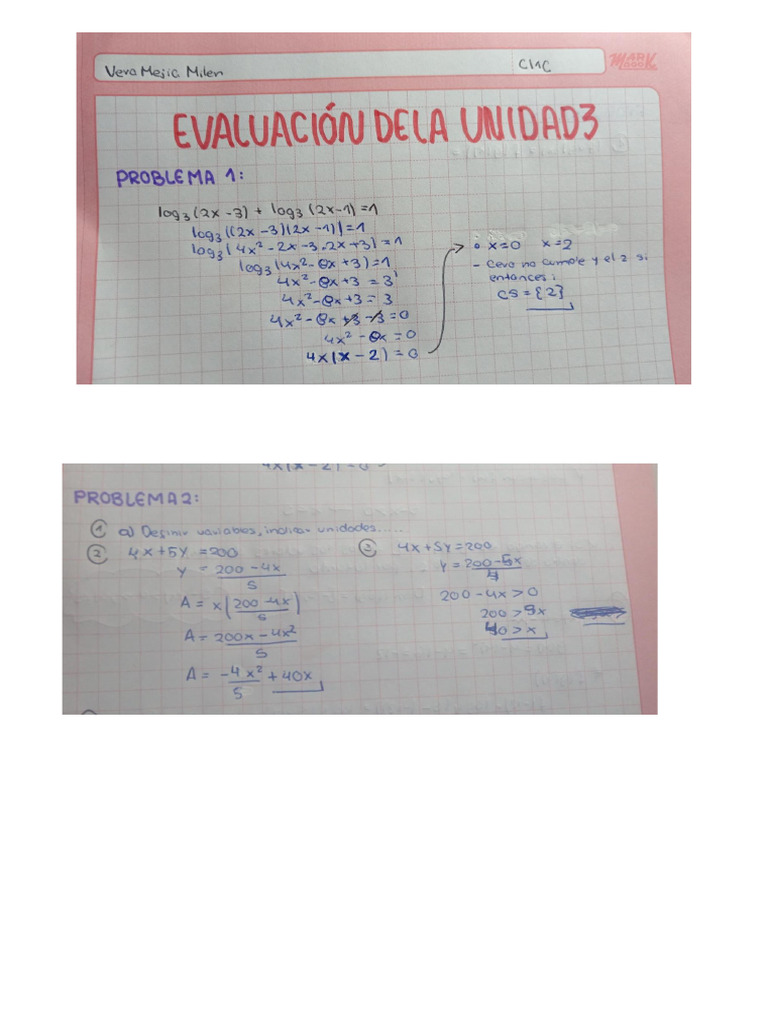 Vera Mejia Milen
C11C
MARK BOOK
EVALUACIÓN DE LA UNIDAD 3
PROBLEMA 1:
log₃(2x-3) + log₃(2x-1) = 1
log₃((2x-3)(2x-1)) = 1
log₃(4x²-2x-3.2x+3) = 1
log₃(4x²-8x+3) = 1
4x²-8x+3 = 3¹
4x²-8x+3 = 3
4x²-8x+3-3 = 0
4x²-8x = 0
4x(x-2) = 0
x=0 x=2
- Cero no cumple y el 2 si
entonces:
CS = {2}
4x(x-2) = 0
PROBLEMA 2:
① a) Definir variables, indicar unidades.....
② 4x+5y = 200
y = 200-4x / 5
A = x(200-4x / 5)
A = 200x-4x² / 5
A = -4x² / 5 + 40x
③ 4x+5y = 200
200-4x > 0